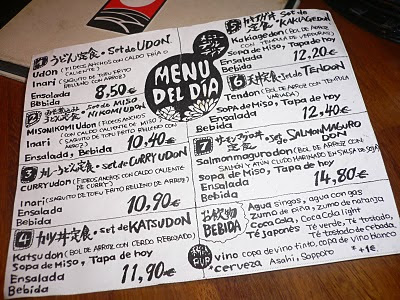 1 うどん定食・Set de UDON
Udon (FIDEOS ANCHOS CON CALDO FRÍO O CALIENTE)
Inari (SAQUITO DE TOFU FRITO RELLENO CON ARROZ)
Ensalada
Bebida 8,50 €
Set de MISO NIKOMI UDON
MISONIKOMI Udon (FIDEOS ANCHOS CON CALDO CALIENTE DE MISO)
Inari (SAQUITO DE TOFU FRITO RELLENO CON ARROZ)
Ensalada, Bebida 10,40 €
3 カレーうどん定食・Set de CURRY UDON
CURRY UDON (FIDEOS ANCHOS CON CALDO CALIENTE DE CURRY)
Inari (SAQUITO DE TOFU FRITO RELLENO DE ARROZ)
Ensalada
Bebida 10,90 €
4 カツ丼定食・Set de KATSUDON
Katsudon (BOL DE ARROZ CON CERDO REBOZADO)
Sopa de Miso, Tapa de hoy
Ensalada
Bebida 11,90 €
MENU DEL DÍA
5 Set de KAKIAGEDON
Kakiagedon (BOL DE ARROZ CON TEMPURA DE VERDURAS)
Sopa de Miso, Tapa de hoy
Ensalada
Bebida 12,20 €
6 天丼定食・Set de TENDON
Tendon (BOL DE ARROZ CON TEMPURA VARIADA)
Sopa de Miso, Tapa de hoy
Ensalada
Bebida 12,40 €
7 Set de SALMON MAGURO DON
Salmonmagurodon (BOL DE ARROZ CON SALMÓN Y ATÚN CRUDO MARINADO EN SALSA DE SOJA)
Sopa de Miso, Tapa de hoy
Ensalada
Bebida 14,80 €
お飲物
BEBIDA
Agua singas, agua con gas
Zumo de piña, Zumo de naranja
Coca Cola, Coca Cola light
Té japonés Té verde, Té tostado,
Té de cebada, Té de tostado
*vino copa de vino tinto, copa de vino blanco
*cerveza Asahi, Sapporo *+1€